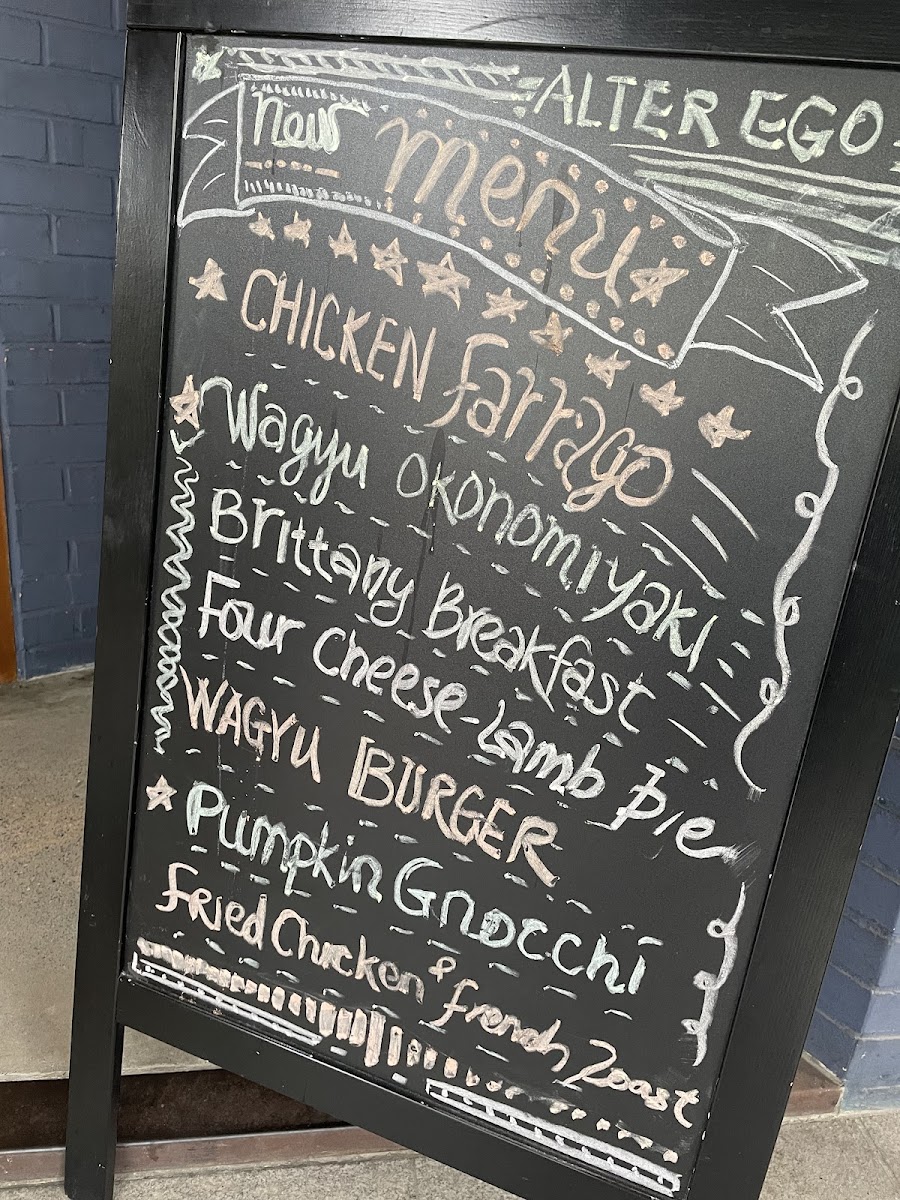 ALTER EGO
New menu
CHICKEN Farrago
Wagyu okonomiyaki
Brittany Breakfast
Four Cheese-Lamb Pie
WAGYU BURGER
Pumpkin Gnocchi
Fried Chicken & french Toast